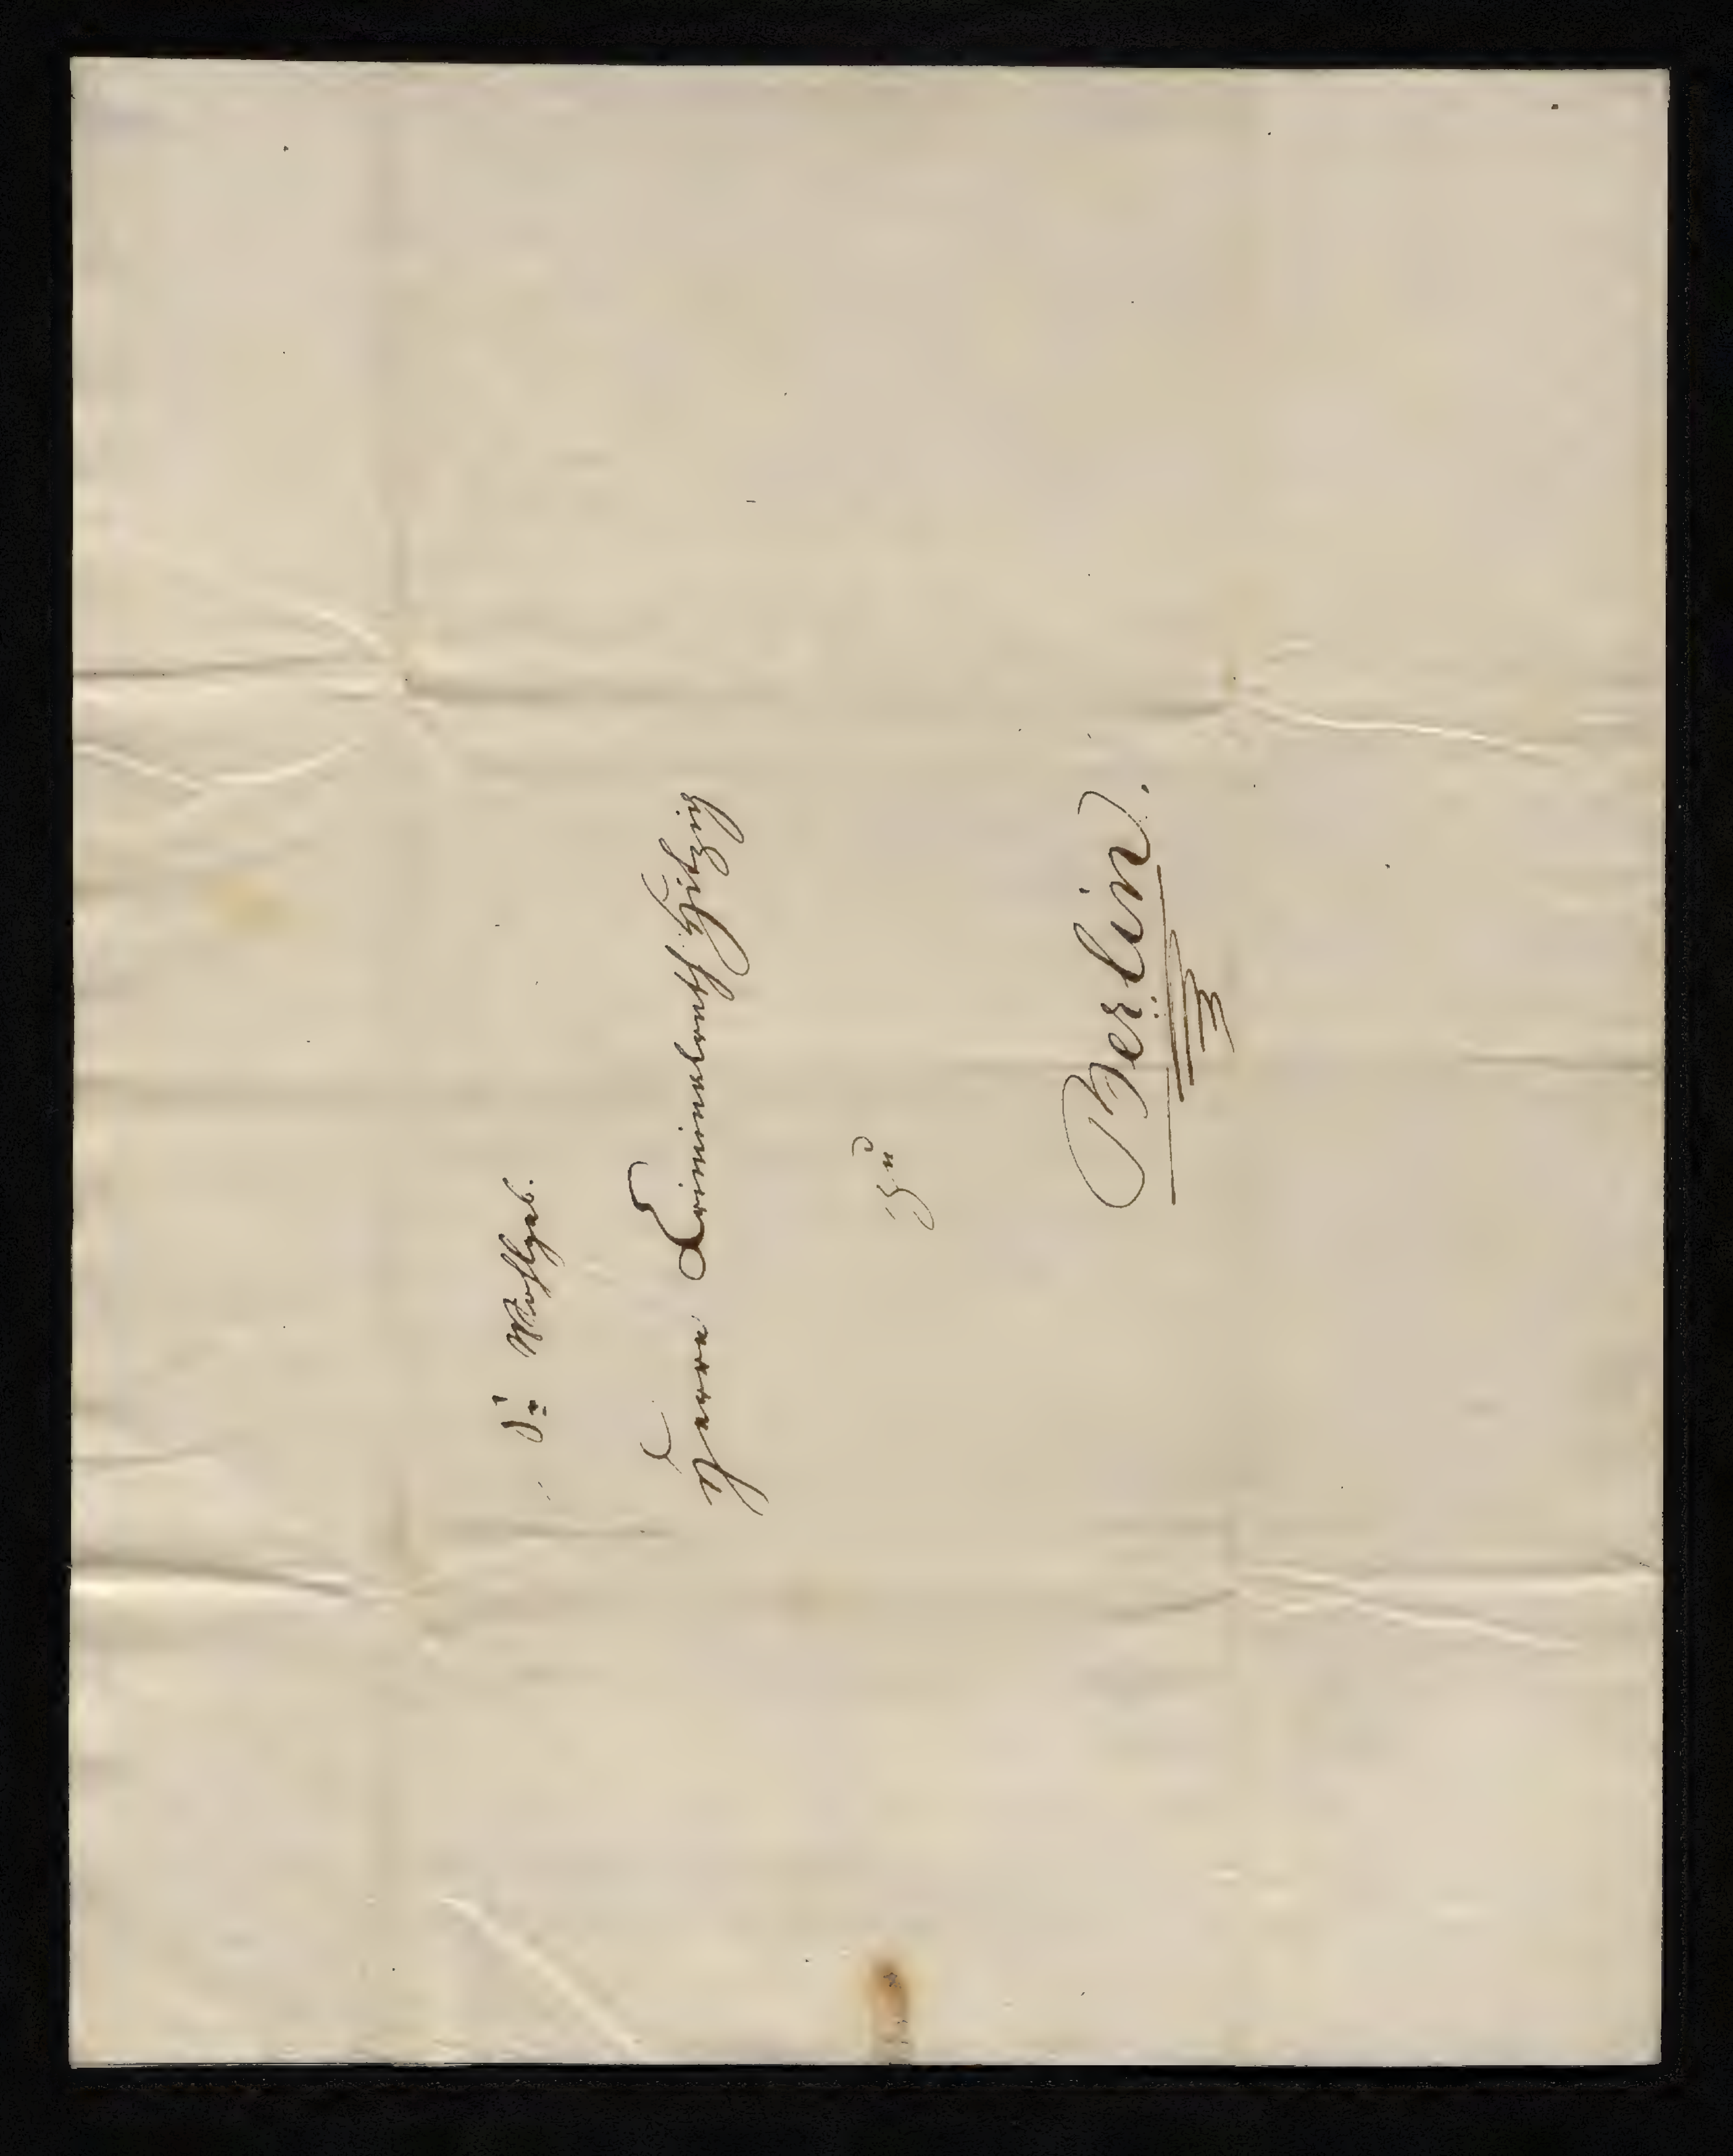 Sr Wohlgeb.
Herrn Criminalrath Hitzig
zu
Berlin.